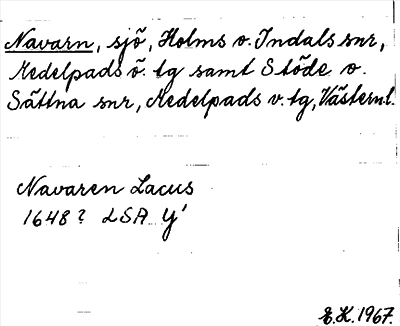 Navarn, sjö, Holms o. Indals snr,
Medelpads ö. tg samt Stöde o.
Sättna snr, Medelpads v. tg, Västernl.
Navaren Lacus
1648? LSA Y'
E.H. 1967.